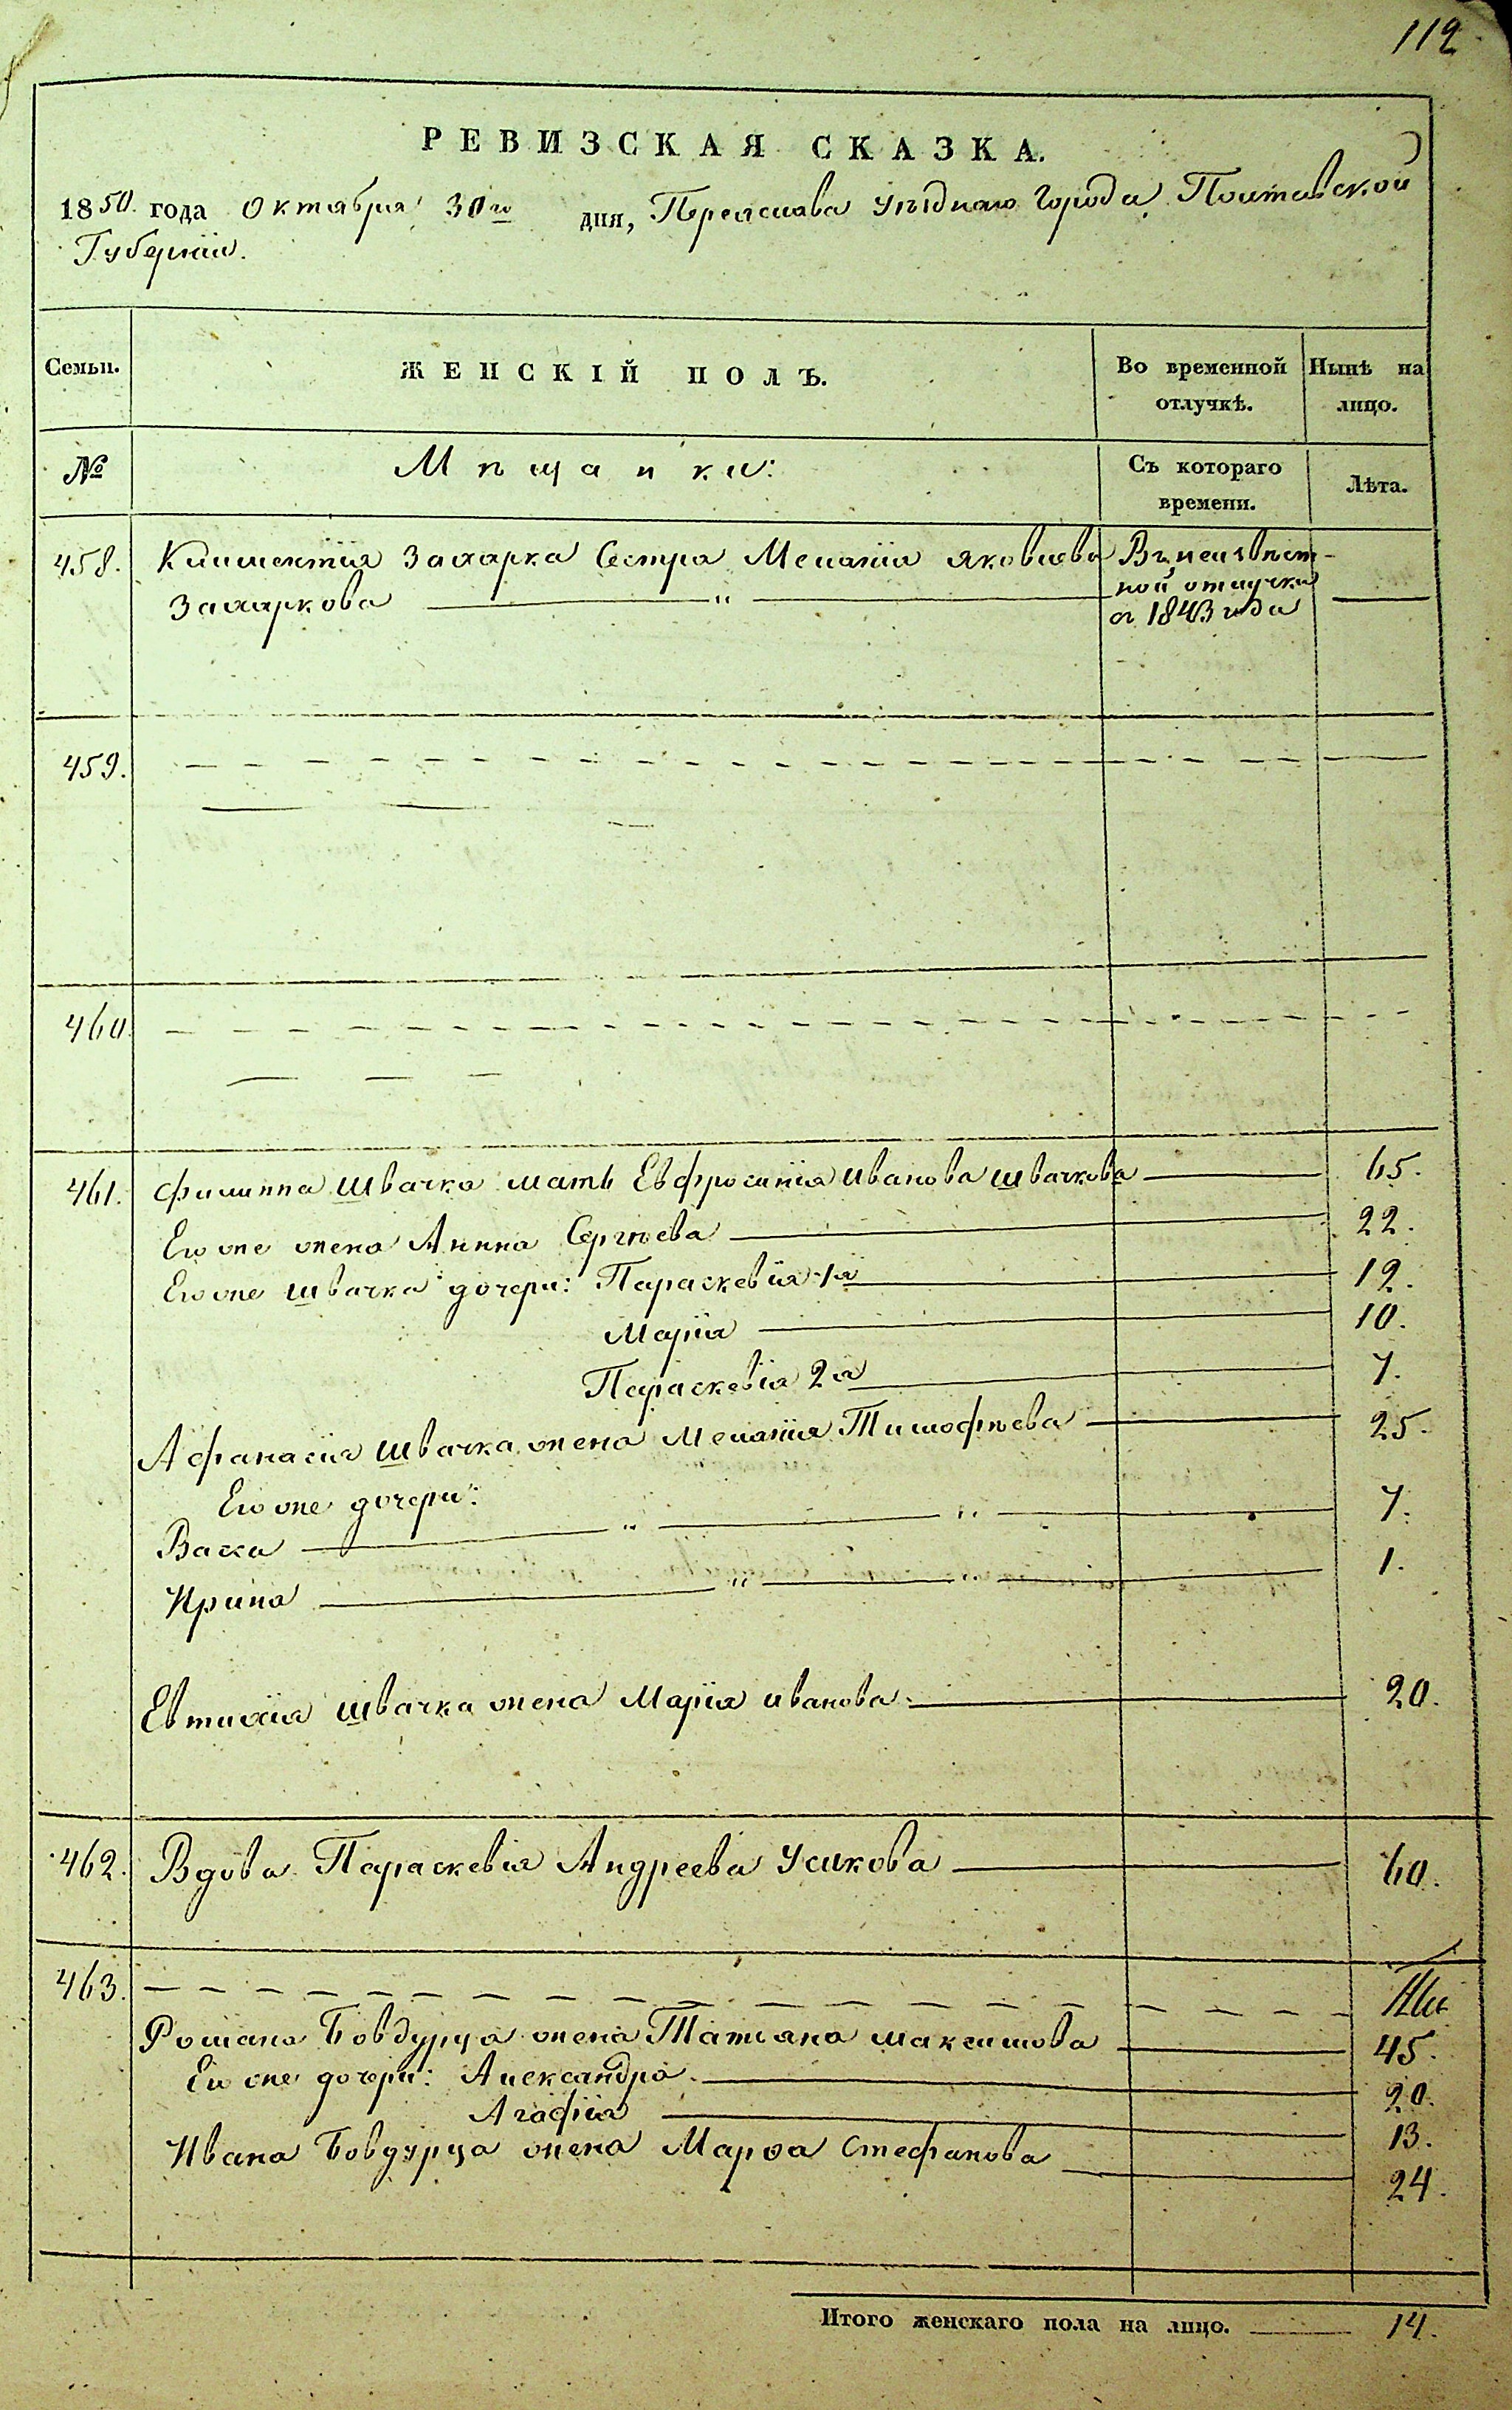 112
РЕВИЗСКАЯ СКАЗКА.
1850. года Октября 30го дня, Переяслава Уѣзднаго Города, Полтавской
Губерніи.
Семьи. ЖЕНСКІЙ ПОЛЪ. Во временной отлучкѣ. Нынѣ на лицо.
№ Мѣщанки: Съ котораго времени. Лѣта.
458. Климентія Захарка Сестра Меланія Яковлева Въ неизвѣст-
Захаркова ной отлучкѣ
съ 1843 года
459.
460.
461. Филиппа Швачка мать Евфросинія Иванова Швачкова 65.
Его же жена Анна Сергѣева 22.
Его же Швачка дочери: Параскевія 1я 12.
Марія 10.
Параскевія 2я 7.
Афанасія Швачка жена Меланія Тимофѣева 25.
Его же дочери:
Васса 7.
Ирина 1.
Евтихія Швачка жена Марія Иванова 20.
462. Вдова Параскевія Андреева Усикова 60.
463.
Романа Бовдурца жена Татіана Максимова 45.
Его же дочери: Александра 20.
Агафія 13.
Ивана Бовдурца жена Марѳа Стефанова 24.
Итого женскаго пола на лицо. 14.